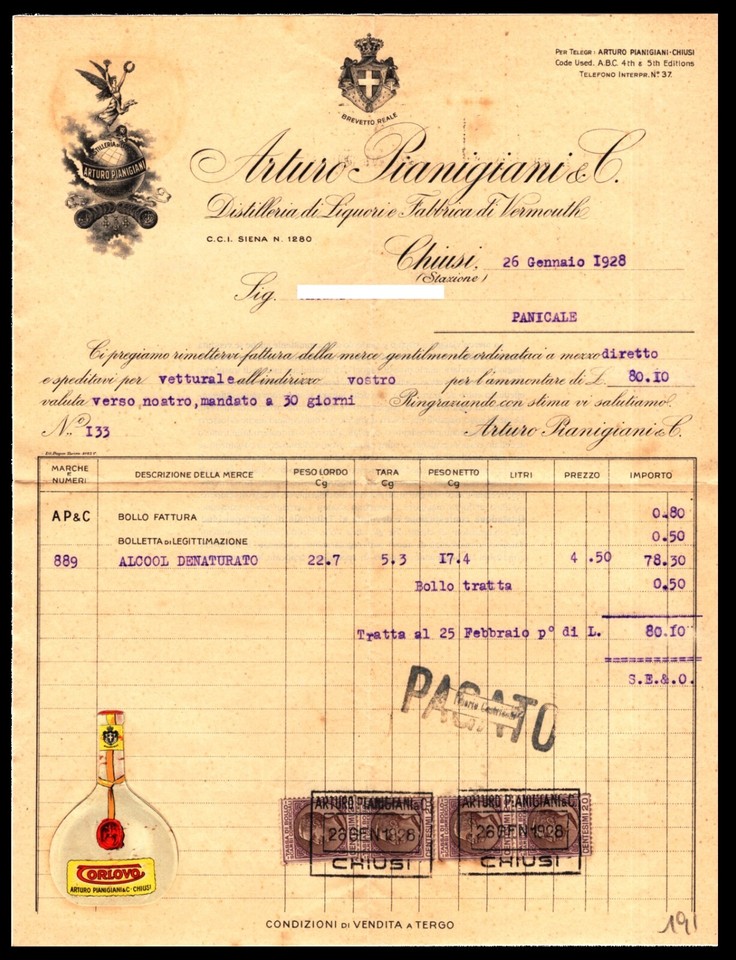 PER TELEGR: ARTURO PIANIGIANI-CHIUSI
Code Used. A.B.C. 4th & 5th Editions
TELEFONO INTERPR. No 37.
BREVETTO REALE
DISTILLERIA
ARTURO PIANIGIANI
Arturo Pianigiani & C.
Distilleria di Liquori e Fabbrica di Vermouth
C.C.I. SIENA N. 1280
Chiusi, 26 Gennaio 1928
(Stazione)
Sig.
PANICALE
Ci pregiamo rimettervi fattura della merce gentilmente ordinataci a mezzo diretto
e speditavi per vetturale all'indirizzo vostro per l'ammontare di L. 80.10
valuta verso noatro,mandato a 30 giorni Ringraziando con stima vi salutiamo.
No 133 Arturo Pianigiani & C.
MARCHE e NUMERI DESCRIZIONE DELLA MERCE PESO LORDO Cg TARA Cg PESO NETTO Cg LITRI PREZZO IMPORTO
AP&C BOLLO FATTURA 0.80
BOLLETTA DI LEGITTIMAZIONE 0.50
889 ALCOOL DENATURATO 22.7 5.3 17.4 4.50 78.30
Bollo tratta 0.50
Tratta al 25 Febbraio p° di L. 80.10
S.E.&.O.
PAGATO
ARTURO PIANIGIANI & C.
26 GEN 1928
CHIUSI
CENTESIMI 20
ARTURO PIANIGIANI & C.
26 GEN 1928
CHIUSI
CENTESIMI 20
CORLOVO
ARTURO PIANIGIANI & C - CHIUSI
CONDIZIONI DI VENDITA A TERGO
191